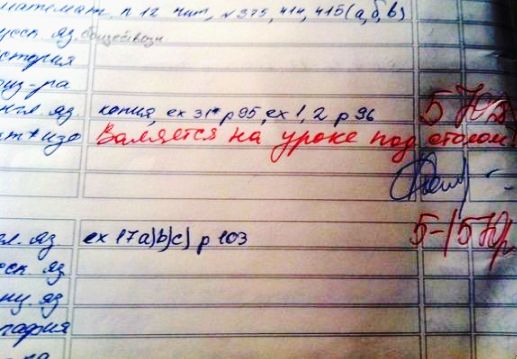 математ. п 12 чит, № 375, 414, 415(а,б,в)
русск. яз. обществозн
история
физ-ра
англ. яз копия, ex 31* p 95, ex 1, 2 p 96 5
Валяется на уроке под столом!
гл. яз ex 17a)b)c) p 103 5-/5
сск. яз
яз
графия